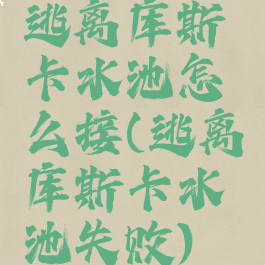 逃离库斯
卡水池怎
么接(逃离
库斯卡水
池失败)